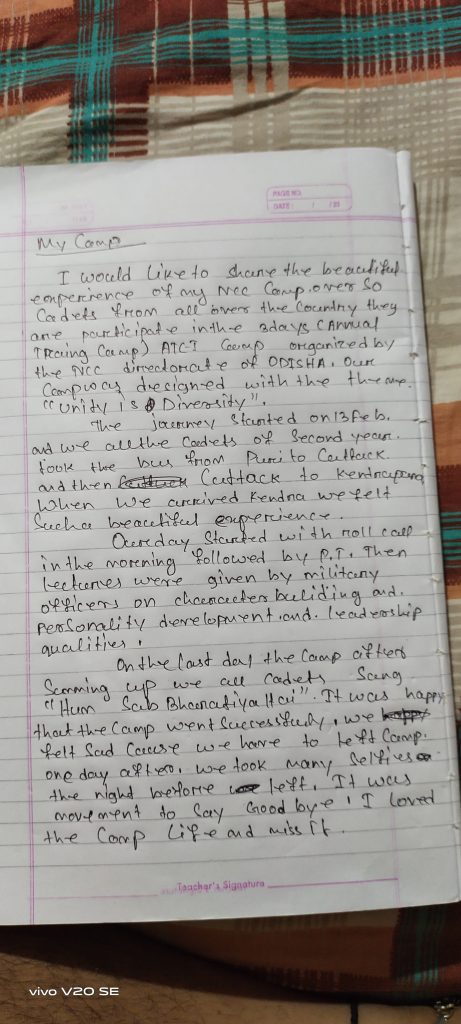 PAGE NO.
DATE: / /20
My Camp
I would like to share the beautiful
experience of my NCC Camp. over 50
Cadets from all over the Country they
are participate in the 3days (Annual
Traing Camp) ATC7 Camp organized by
the NCC directorate of ODISHA. Our
Camp was designed with the theme.
"Unity is Diversity".
The journey Started on 13 Feb.
and we all the Cadets of Second year.
took the bus from Puri to Cuttack.
and then Cuttack to Kendrapara,
When We arrived Kendra we felt
Such a beautiful experience.
Our day Started with roll call
in the morening followed by P.T. Then
Lectures were given by military
officers on character buliding and.
Personality development. and. leadership
qualities.
On the last day the Camp after
Summing up we all Cadets Sang
"Hum Sab Bharatiya Hai". It was happy
that the Camp went Successfully, we
felt Sad Cause we have to left Camp.
one day after. we took many Selfies
the night before left. It was
movement to Say Good bye. I loved
the Camp life and miss it.
Teacher's Signature
vivo V20 SE